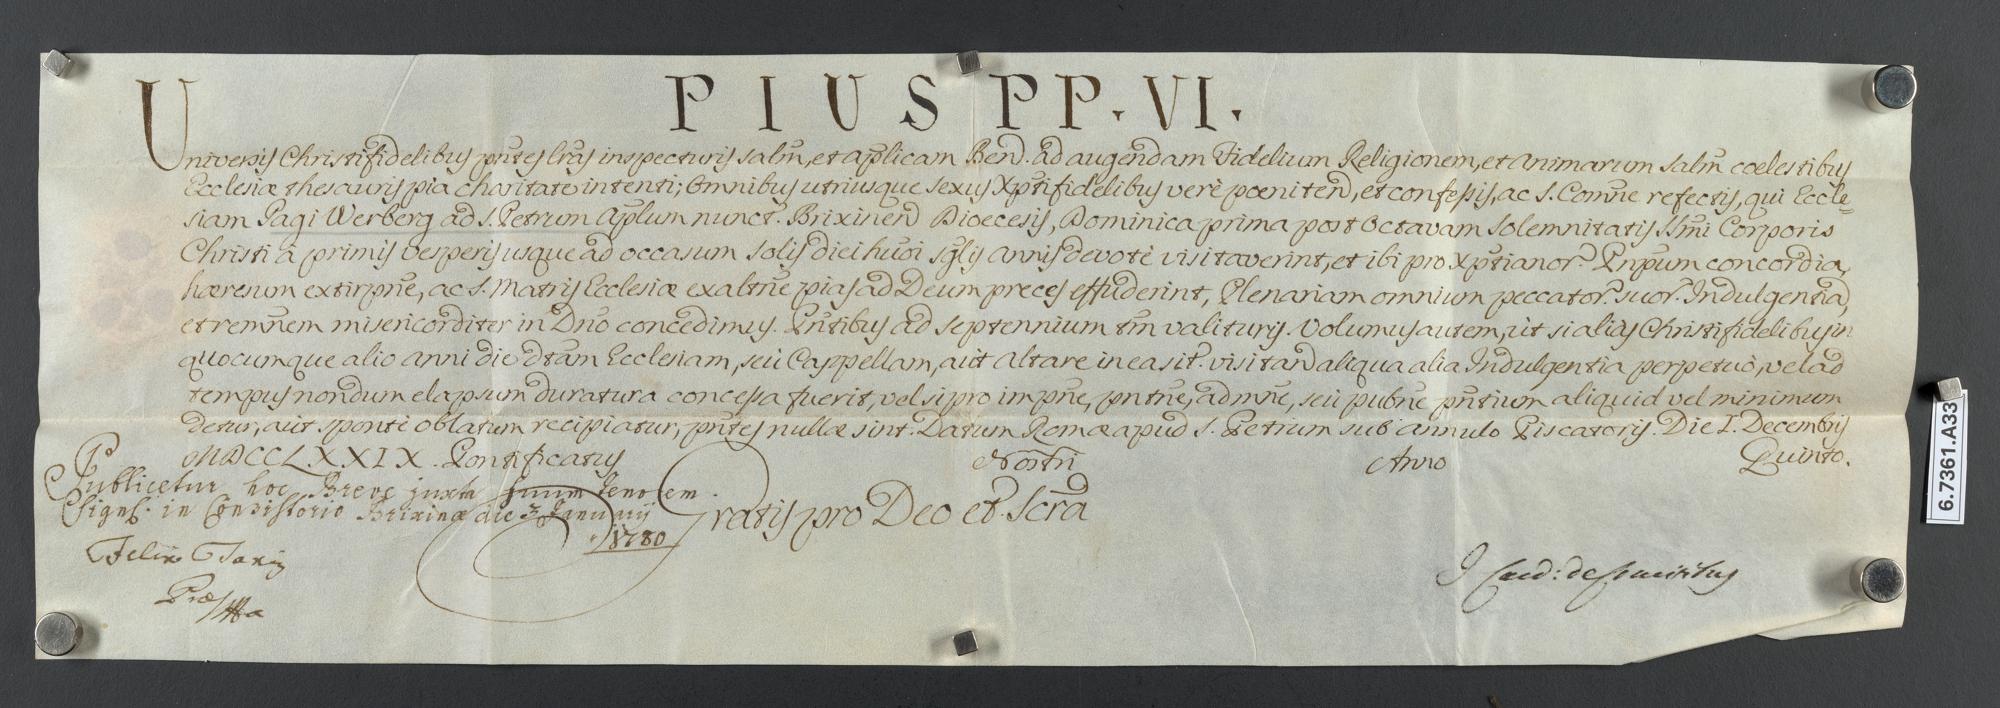 PIUS PP. VI.
Universis Christifidelibus pñtes Lrās inspecturis salm̄, et ap̄licam Bend. Ad augendam Fidelium Religionem, et animarum salm̄ coelestibus
Ecclesiæ thesauris pia charitate intenti; Omnibus utriusque sexus Xp̄tifidelibus verè poeniten̄, et confessis, ac S. Com̄ne refectis, qui Eccle=
siam Pagi Werberg ad S. Petrum Ap̄lum nunct. Brixinen̄ Dioecesis, Dominica prima post Octavam Solemnitatis Ss̄mi Corporis
Christi à primis vesperis usque ad occasum solis diei hum̄oi sḡlis annis devotè visitaverint, et ibi pro Xp̄tianor. Pn̄pum concordia,
hæresum extirpn̄e, ac S. Matris Ecclesiæ exaltn̄e pias ad Deum preces effuderint, Plenariam omnium peccator. suor. Indulgentiā,
et remn̄em misericorditer in Dn̄o concedimus. Pn̄tibus ad septennium tm̄ valituris. Volumus autem, ut si alias Christifidelibus in
quocumque alio anni die dt̄am Ecclesiam, seù Cappellam, aut Altare in ea sit. visitan̄ aliqua alia Indulgentia perpetuò, vel ad
tempus nondum elapsum duratura concessa fuerit, vel si pro impn̄e, pn̄tne, admn̄e, seù pubn̄e pn̄tium aliquid vel minimum
detur, aut spontè oblatum recipiatur, pn̄tes nullæ sint. Datum Romæ apud S. Petrum sub annulo Piscatoris. Die I. Decembris
MDCCLXXIX. Pontificatus Nostri Anno Quinto.
Publicetur hoc Breve juxta suum tenorem.
Signt. in Consistorio Brixinæ die 3. Januarij
1780
Gratis pro Deo et Scrā
Felix
J Card: de Comitibus
6.7361.A33